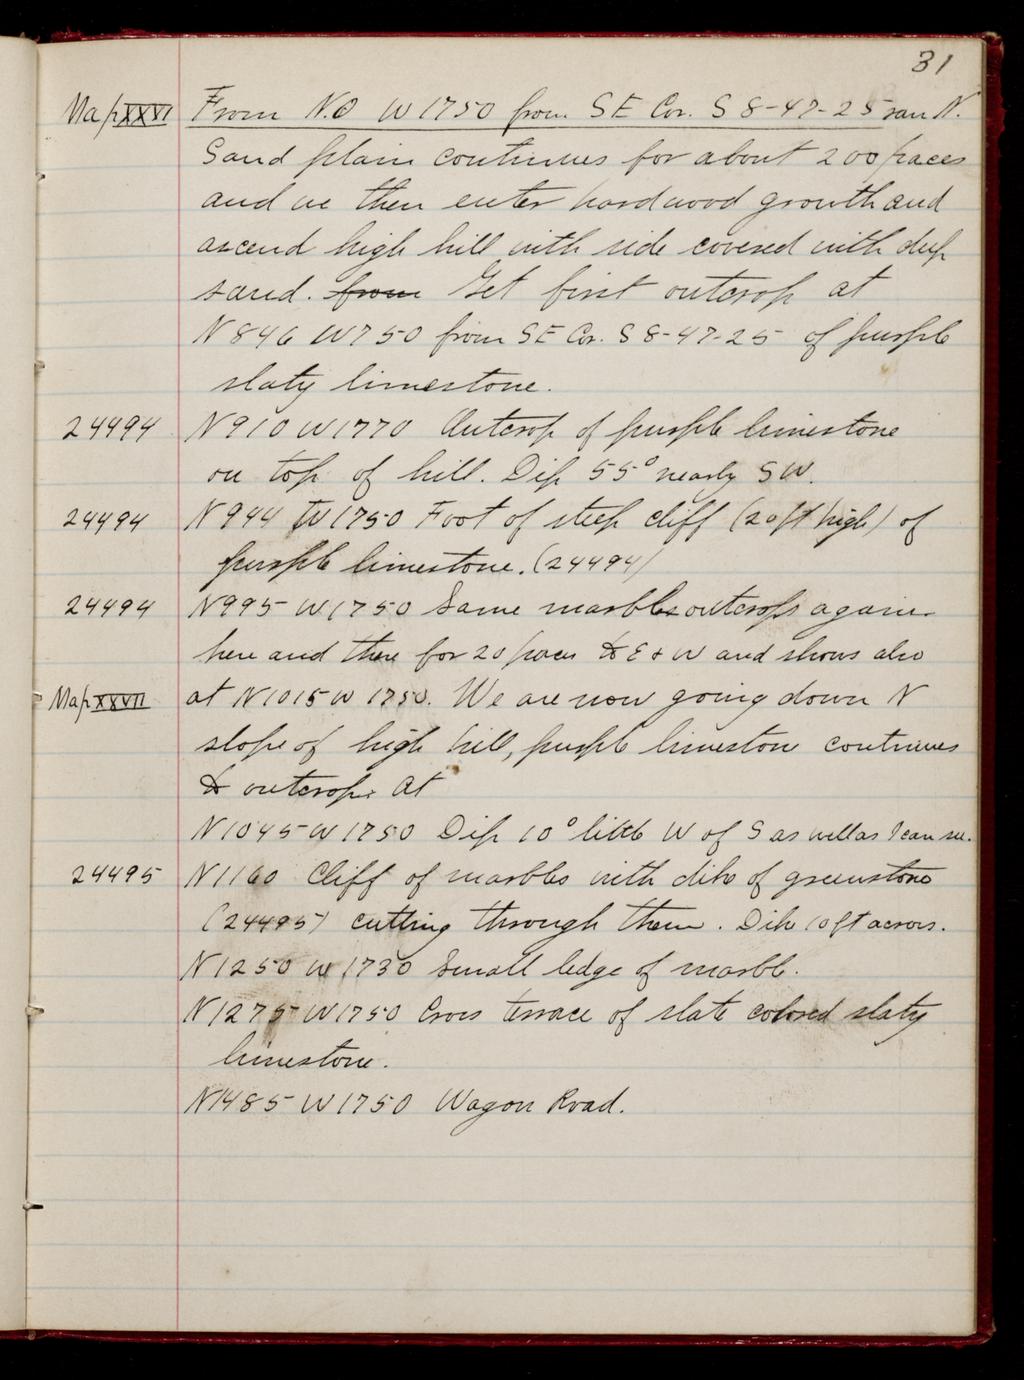 31
Map XXVI From N.O W1750 from SE Cor. S 8-47-25 ran N.
Sand plain continues for about 200 paces
and we then enter hardwood growth and
ascend high hill with side covered with deep
sand. from Get first outcrop at
N846 W1750 from SE Cor. S 8-47-25 of purple
slaty limestone.
24494 N910 W1770 Outcrop of purple limestone
on top of hill. Dip 55° nearly SW.
24494 N944 W1750 Foot of steep cliff (20 ft high) of
purple limestone. (24494)
24494 N995 W1750 Same marble outcrops again
here and there for 20 paces to E & W and shows also
Map XXVII at N1015 W 1750. We are now going down N
slope of high hill, purple limestone continues
to outcrop. At
N1045 W1750 Dip 10° little W of S as well as I can see.
24495 N1160 Cliff of marbles with dike of greenstone
(24495) cutting through them. Dike 10 ft across.
N1250 W1730 Small ledge of marble.
N1275 W1750 Cross terrace of slate colored slaty
limestone.
N1485 W1750 Wagon Road.